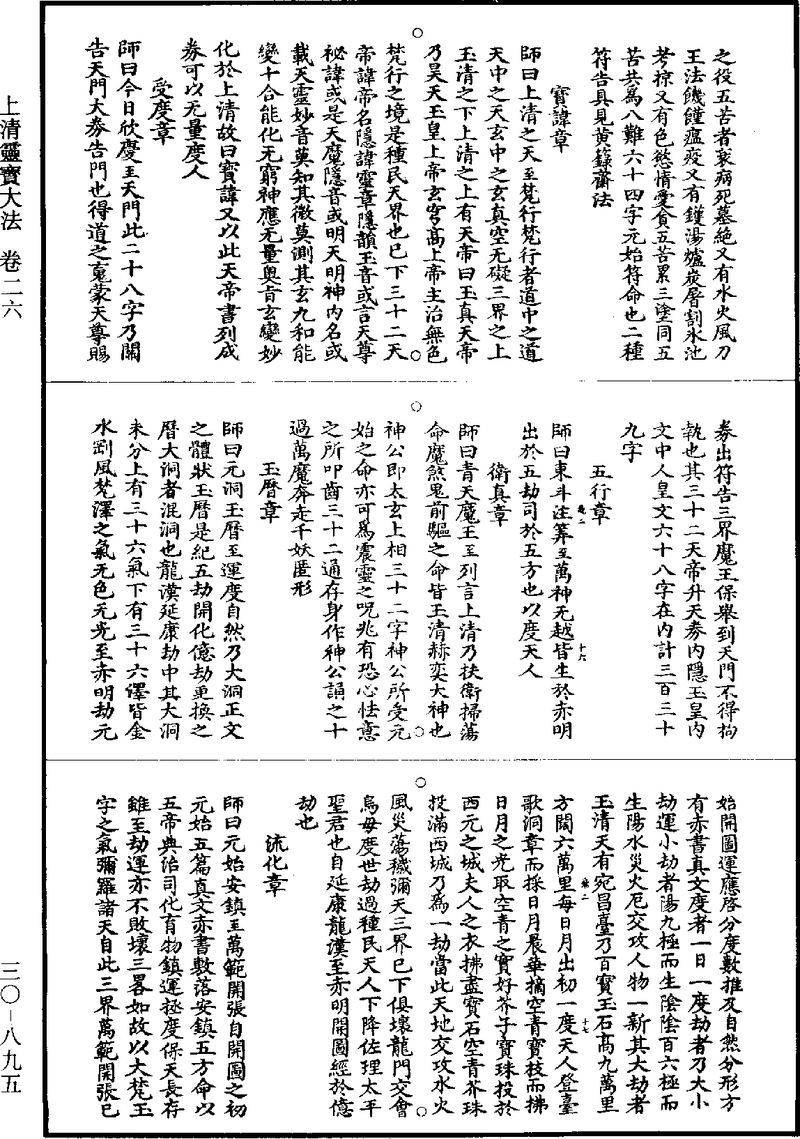 上清靈寶大法　卷二六
三〇－八九五
之役五苦者衰病死墓絶又有水火風刀
王法饑饉瘟疫又有鑊湯爐炭屠割氷池
考掠又有色慾情愛貪五苦累三塗同五
苦共為八難六十四字元始符命也二種
符告具見黄籙齋法
寳諱章
師曰上清之天至梵行梵行者道中之道
天中之天玄中之玄真空无礙三界之上
玉清之下上清之上有天帝曰玉真天帝
乃昊天玉皇上帝玄穹高上帝主治無色
梵行之境是種民天界也已下三十二天
帝諱帝名隱諱靈章隱韻玉音或言天尊
祕諱或是天魔隱音或明天明神内名或
載天靈妙音莫知其微莫測其玄九和能
變十合能化无窮神應无量奥旨玄變妙
化於上清故曰寳諱又以此天帝書列成
券可以无量度人
受度章
師曰今日欣慶至天門此二十八字乃關
告天門大券告門也得道之䰟蒙天尊賜
券出符告三界魔王保舉到天門不得拘
執也其三十二天帝升天券内隱玉皇内
文中人皇文六十八字在内計三百三十
九字
五行章
師曰東斗注筭至萬神无越皆生於赤明
出於五劫司於五方也以度天人
衛真章
師曰青天魔王至列言上清乃扶衛掃蕩
命魔煞鬼前驅之命皆玉清赫奕大神也
神公即太玄上相三十二字神公所受元
始之命亦可為震靈之呪兆有恐心怯意
之所叩齒三十二通存身作神公誦之十
過萬魔奔走千妖匿形
玉曆章
師曰元洞玉曆至運度自然乃大洞正文
之體狀玉曆是紀五劫開化億劫更換之
曆大洞者混洞也龍漢延康劫中其大洞
未分上有三十六氣下有三十六澤皆金
水剛風梵澤之氣无色无光至赤明劫元
始開圖運應啓分度數推及自然分形方
有赤書真文度者一日一度劫者乃大小
劫運小劫者陽九極而生陰陰百六極而
生陽水災火厄交攻人物一新其大劫者
玉清天有宛昌臺乃百寳玉石高九萬里
方闊六萬里每日月出初一度天人登臺
歌洞章而採日月晨華摘空青寳枝而拂
日月之光取空青之寳好芥子寳珠投於
西元之城夫人之衣拂盡寳石空青芥珠
投滿西城乃為一劫當此天地交攻水火
風災蕩穢彌天三界已下俱壞龍門交會
鳥母度世劫過種民天人下降佐理太平
聖君也自延康龍漢至赤明開圖經於億
劫也
流化章
師曰元始安鎮至萬範開張自開圖之初
元始五篇真文赤書敷落安鎮五方命以
五帝典治司化育物鎮運拯度保天長存
雖至劫運亦不敗壞三畧如故以大梵玉
字之氣彌羅諸天自此三界萬範開張已